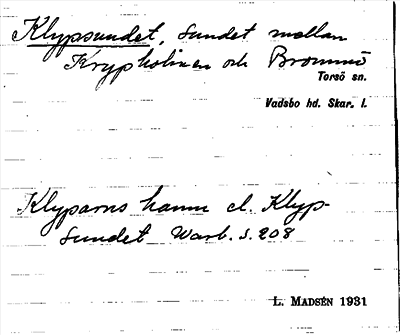 Klypsundet, sundet mellan
Krypholmen och Bromnö
Torsö sn.
Vadsbo hd. Skar. l.
Klyparns hamn el. Klyp-
sundet Warb. s. 208
L. Madsén 1931